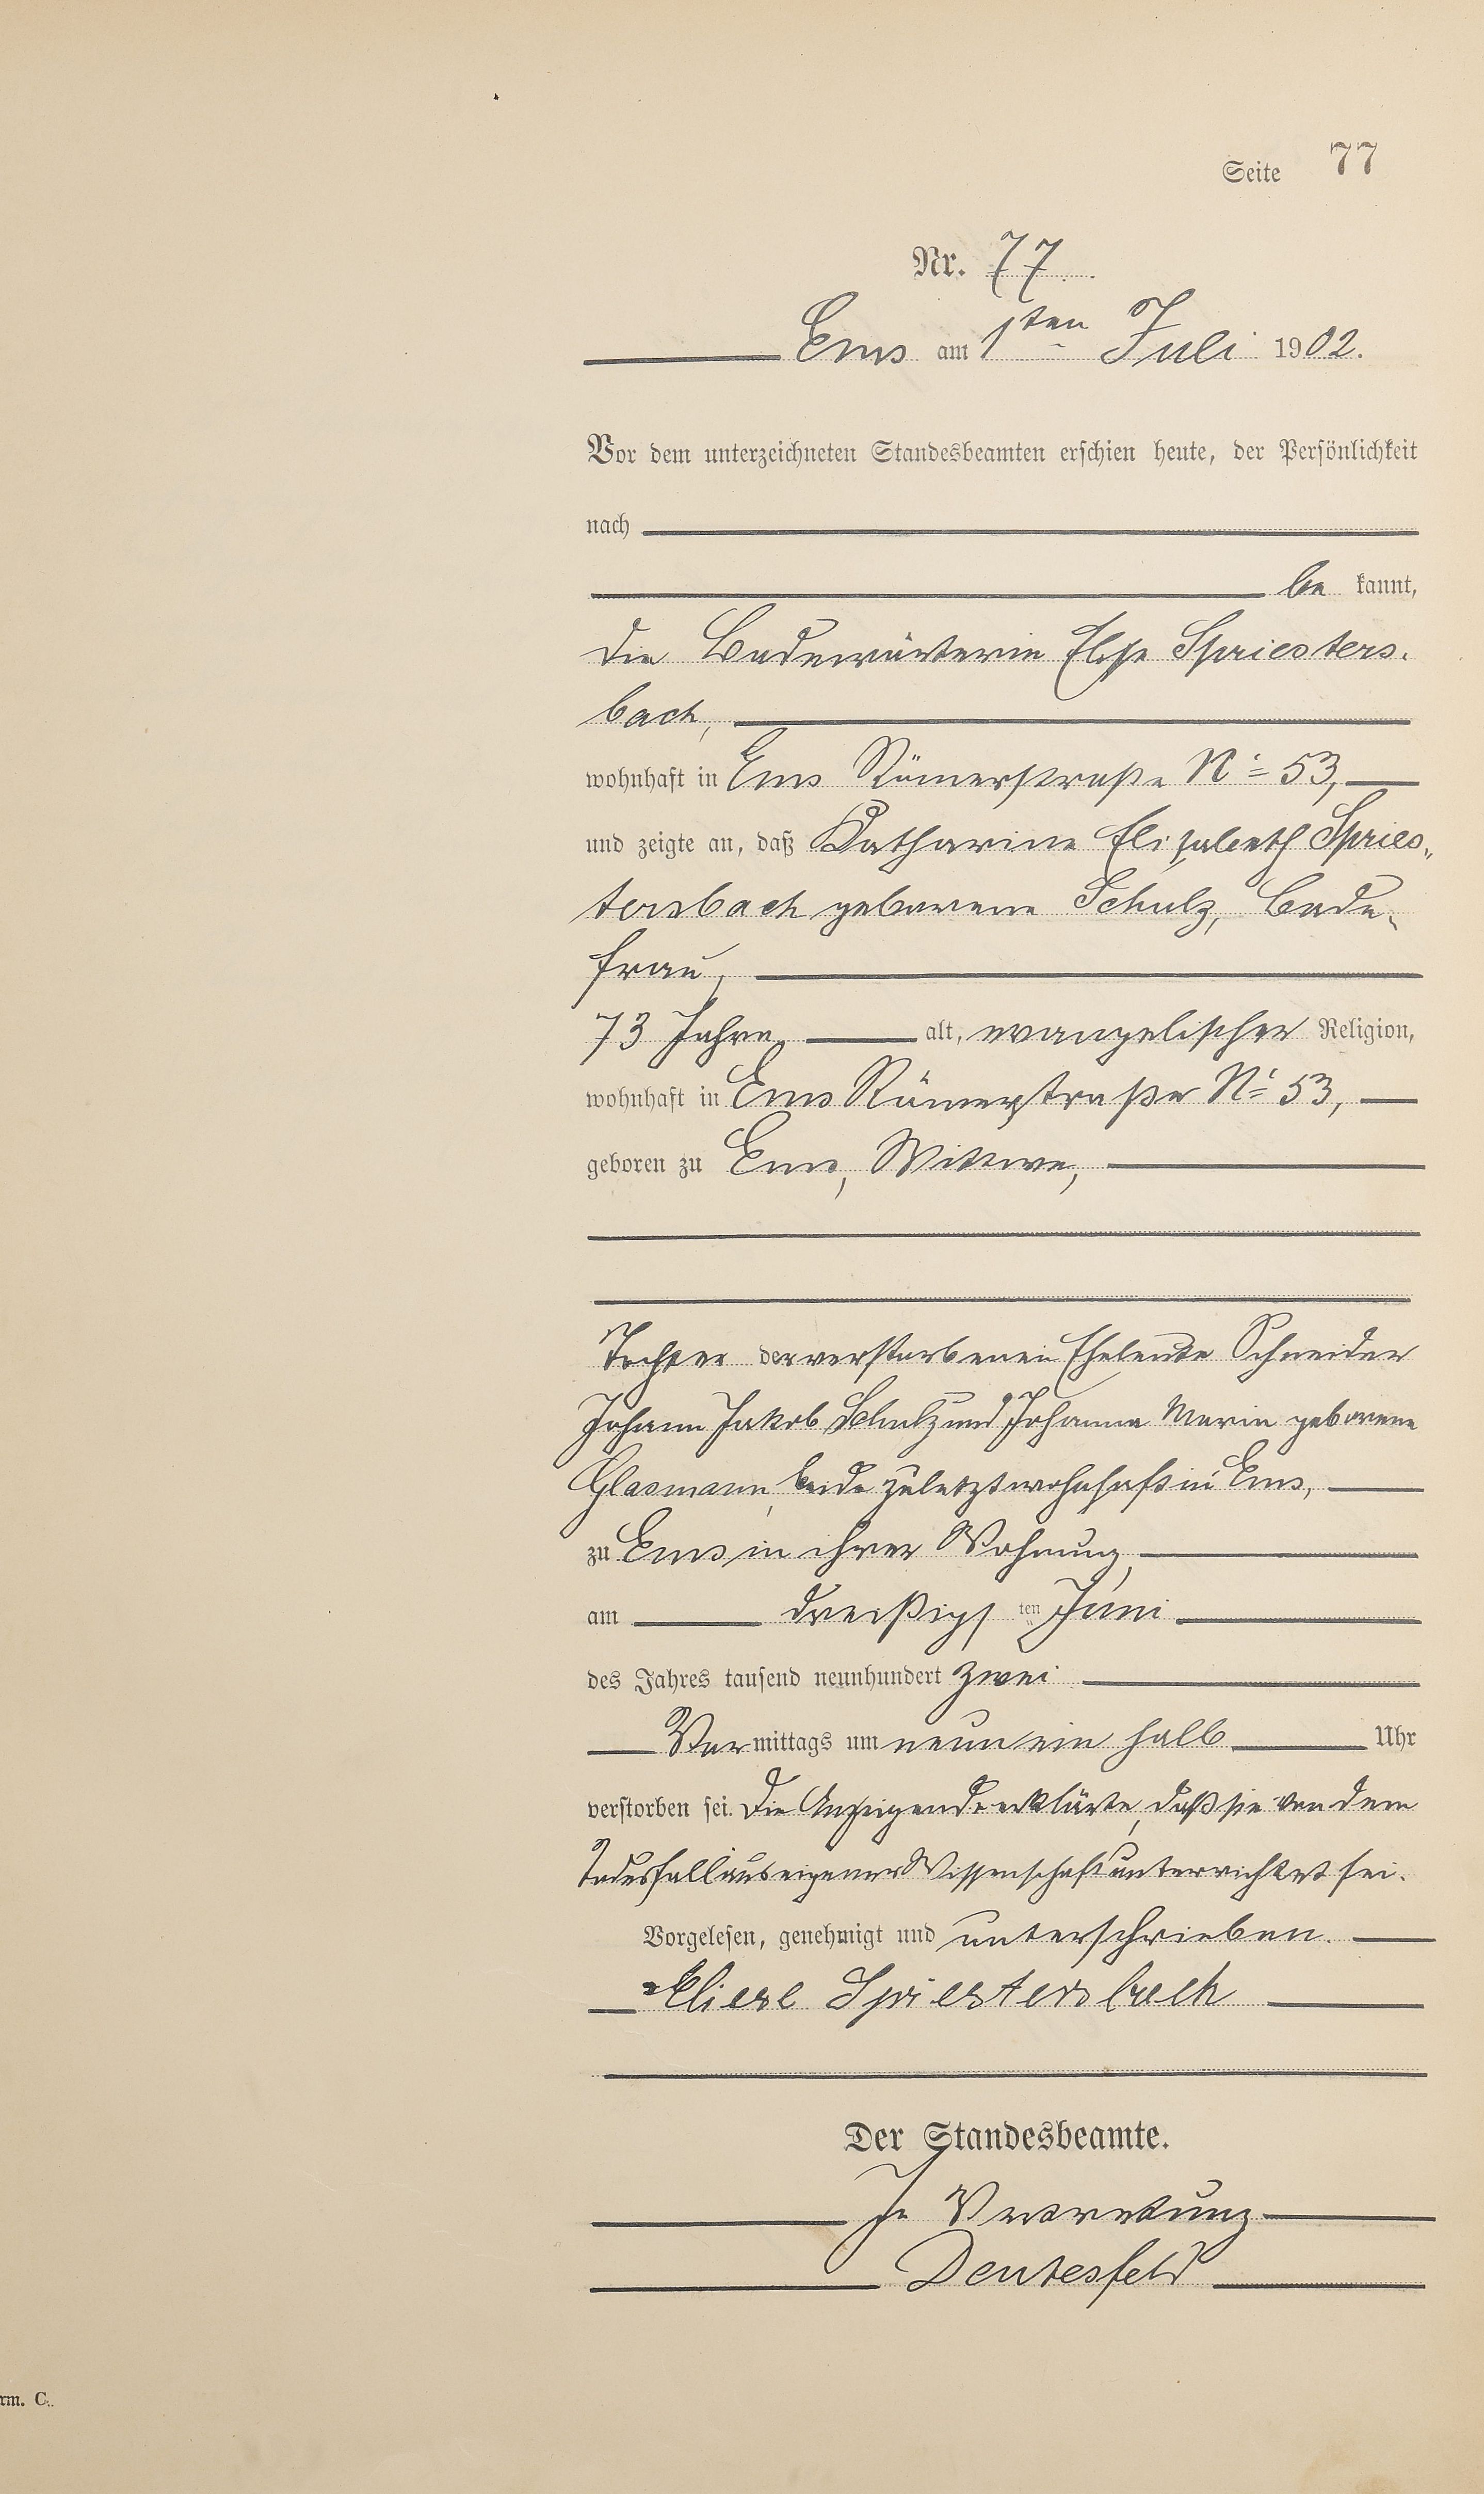 Seite 77
Nr. 77
Ems am 1ten Juli 1902.
Vor dem unterzeichneten Standesbeamten erschien heute, der Persönlichkeit
nach
be kannt,
die Badewärterin Elise Spriesters-
bach,
wohnhaft in Ems Römerstraße No 53,
und zeigte an, daß Katharine Elisabeth Spries-
tersbach geborene Schulz, Bade-
frau,
73 Jahre alt, evangelischer Religion,
wohnhaft in Ems Römerstraße No 53,
geboren zu Ems, Wittwe,
Tochter der verstorbenen Eheleute Schneider
Johann Jakob Schulz und Johanna Maria geborene
Glasmann, beide zuletzt wohnhaft in Ems,
zu Ems in ihrer Wohnung,
am dreißigs ten Juni
des Jahres tausend neunhundert zwei
Vor mittags um neun ein halb Uhr
verstorben sei. Die Anzeigende erklärte, daß sie von dem
Todesfall aus eigener Wissenschaft unterrichtet sei.
Vorgelesen, genehmigt und unterschrieben.
Eliese Spriestersbach
Der Standesbeamte.
In Vertretung
Deutesfeld
rm. C.